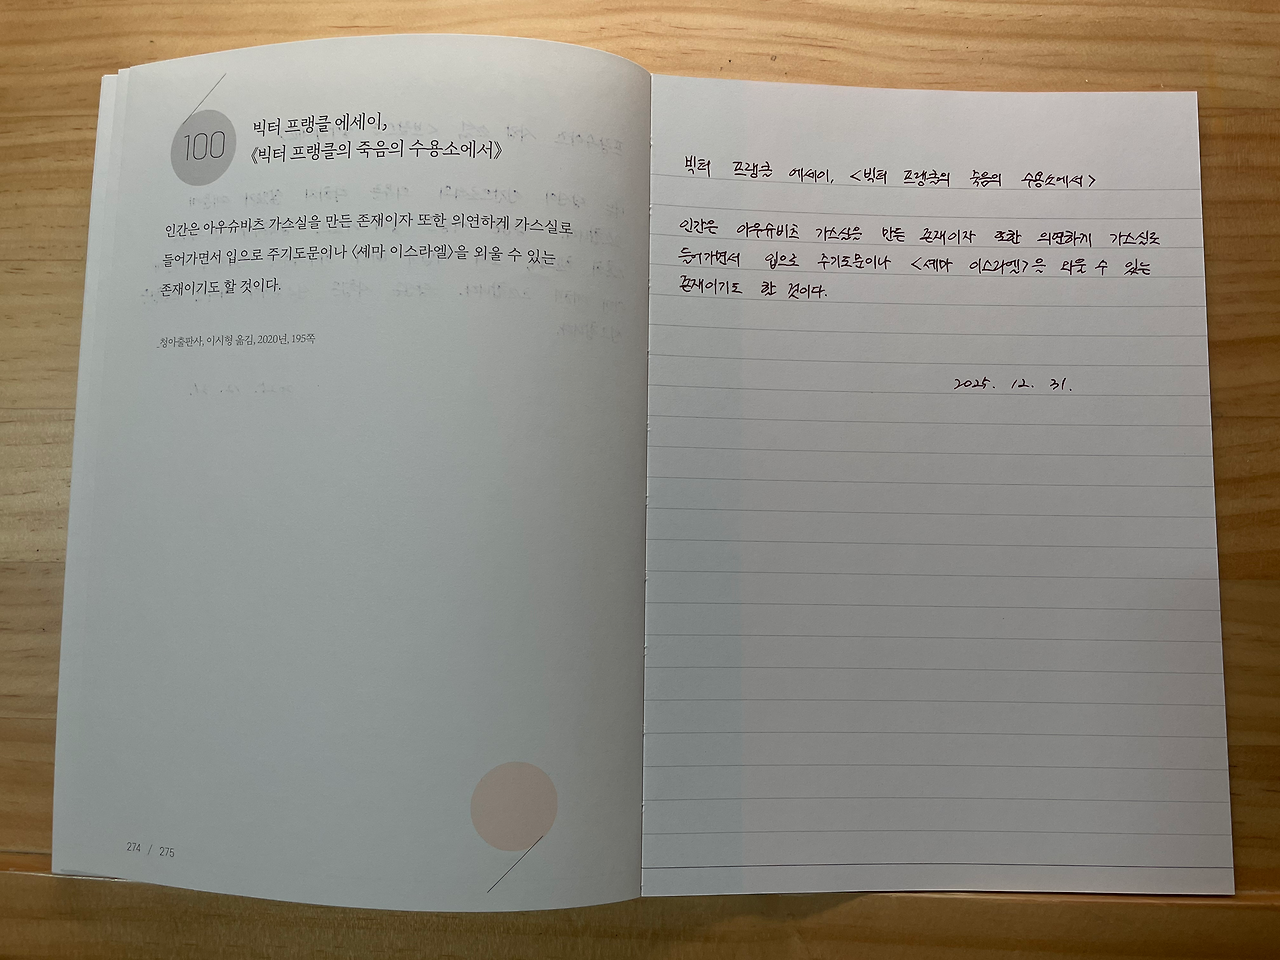 100
빅터 프랭클 에세이,
《빅터 프랭클의 죽음의 수용소에서》
인간은 아우슈비츠 가스실을 만든 존재이자 또한 의연하게 가스실로
들어가면서 입으로 주기도문이나 〈셰마 이스라엘〉을 외울 수 있는
존재이기도 할 것이다.
_청아출판사, 이시형 옮김, 2020년, 195쪽
274 / 275
빅터 프랭클 에세이, <빅터 프랭클의 죽음의 수용소에서>
인간은 아우슈비츠 가스실을 만든 존재이자 또한 의연하게 가스실로
들어가면서 입으로 주기도문이나 <셰마 이스라엘>을 외울 수 있는
존재이기도 할 것이다.
2025. 12. 31.